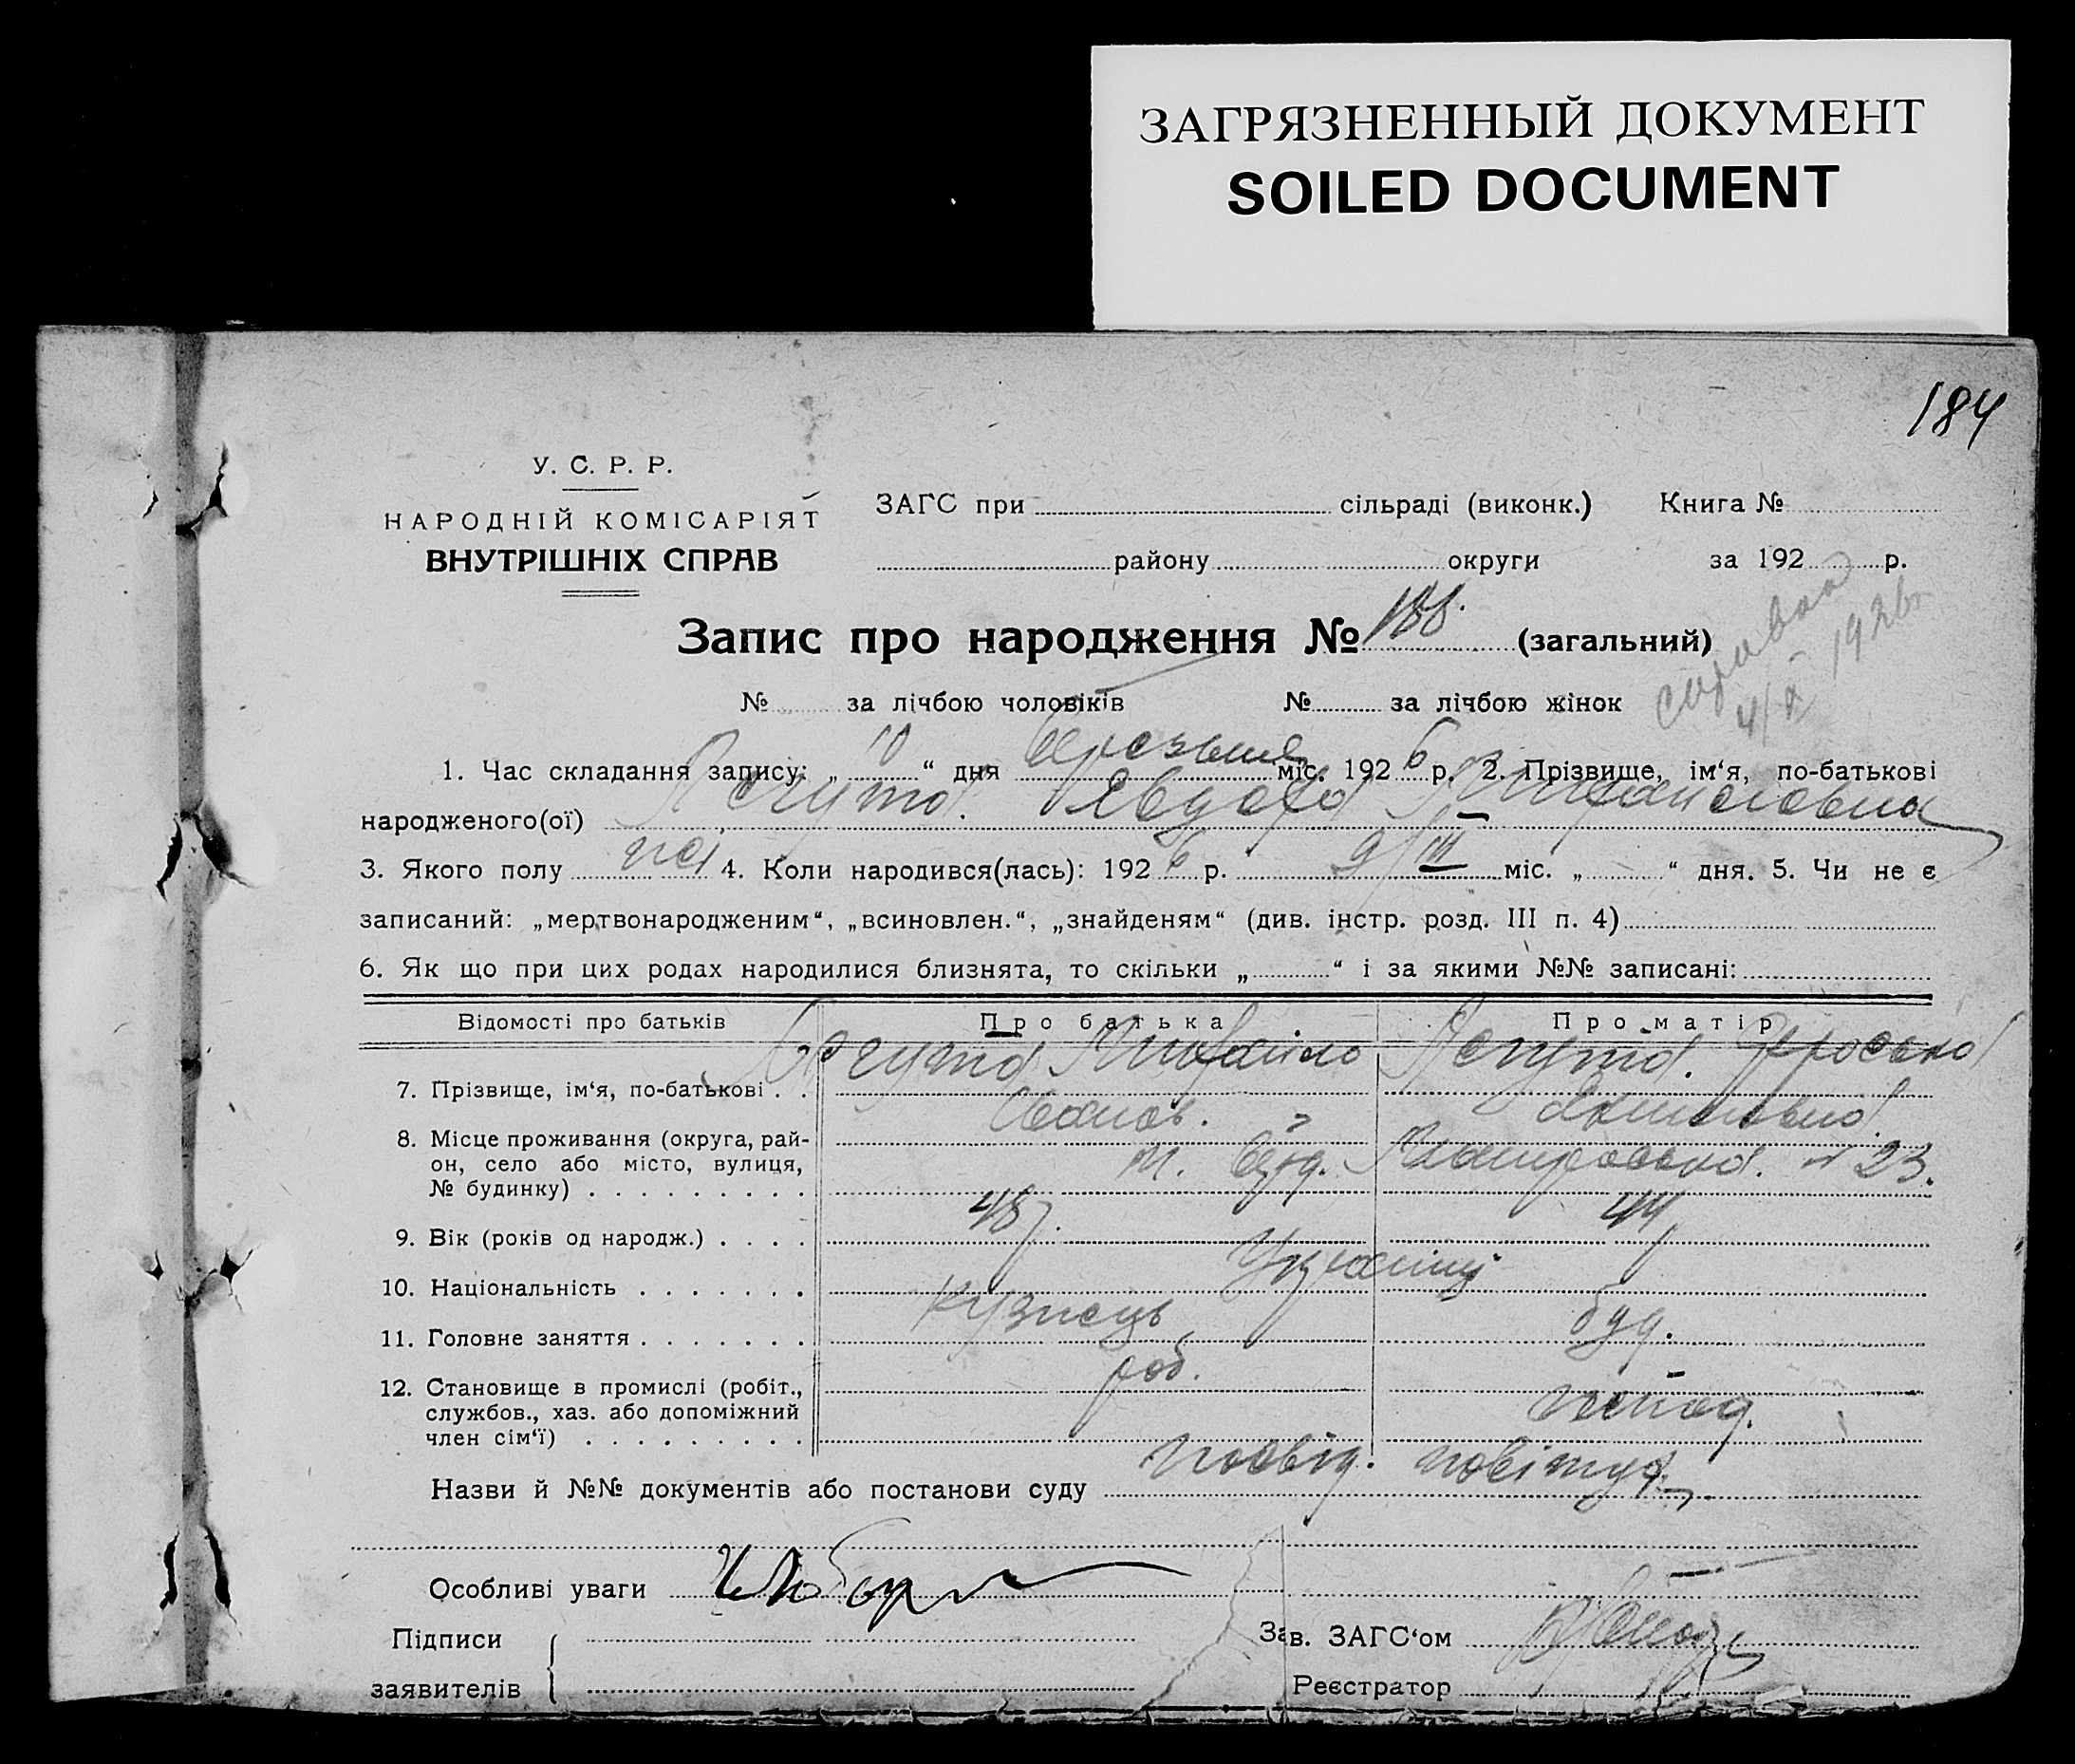 ЗАГРЯЗНЕННЫЙ ДОКУМЕНТ
SOILED DOCUMENT
184
У. С. Р. Р.
НАРОДНІЙ КОМІСАРІЯТ
ВНУТРІШНІХ СПРАВ
ЗАГС при сільраді (виконк.) Книга №
району округи за 192 р.
Запис про народження № 188. (загальний)
1926
№ за лічбою чоловіків № за лічбою жінок
1. Час складання запису: „ 10 “ дня березня міс. 1926 р. 2. Прізвище, ім‘я, по-батькові
народженого(ої) Явдоха Михайловна
3. Якого полу 4. Коли народився(лась): 1926 р. 9/III міс. „ “ дня. 5. Чи не є
записаний: „мертвонародженим“, „всиновлен.“, „знайденям“ (див. інстр. розд. III п. 4)
6. Як що при цих родах народилися близнята, то скільки „ “ і за якими №№ записані:
Відомості про батьків Про батька Про матір
7. Прізвище, ім‘я, по-батькові . . Михайло
Іванов.
8. Місце проживання (округа, рай-
он, село або місто, вулиця,
№ будинку) . . . . . . . . . 23.
9. Вік (років од народж.) . . . . 48 44
10. Національність . . . . . . . Українці
11. Головне заняття . . . . . . . Кузнець
12. Становище в промислі (робіт.,
службов., хаз. або допоміжний
член сім‘ї) . . . . . . . . . роб.
Назви й №№ документів або постанови суду посвід. повітух
Особливі уваги
Підписи
заявителів
Зав. ЗАГС‘ом
Реєстратор